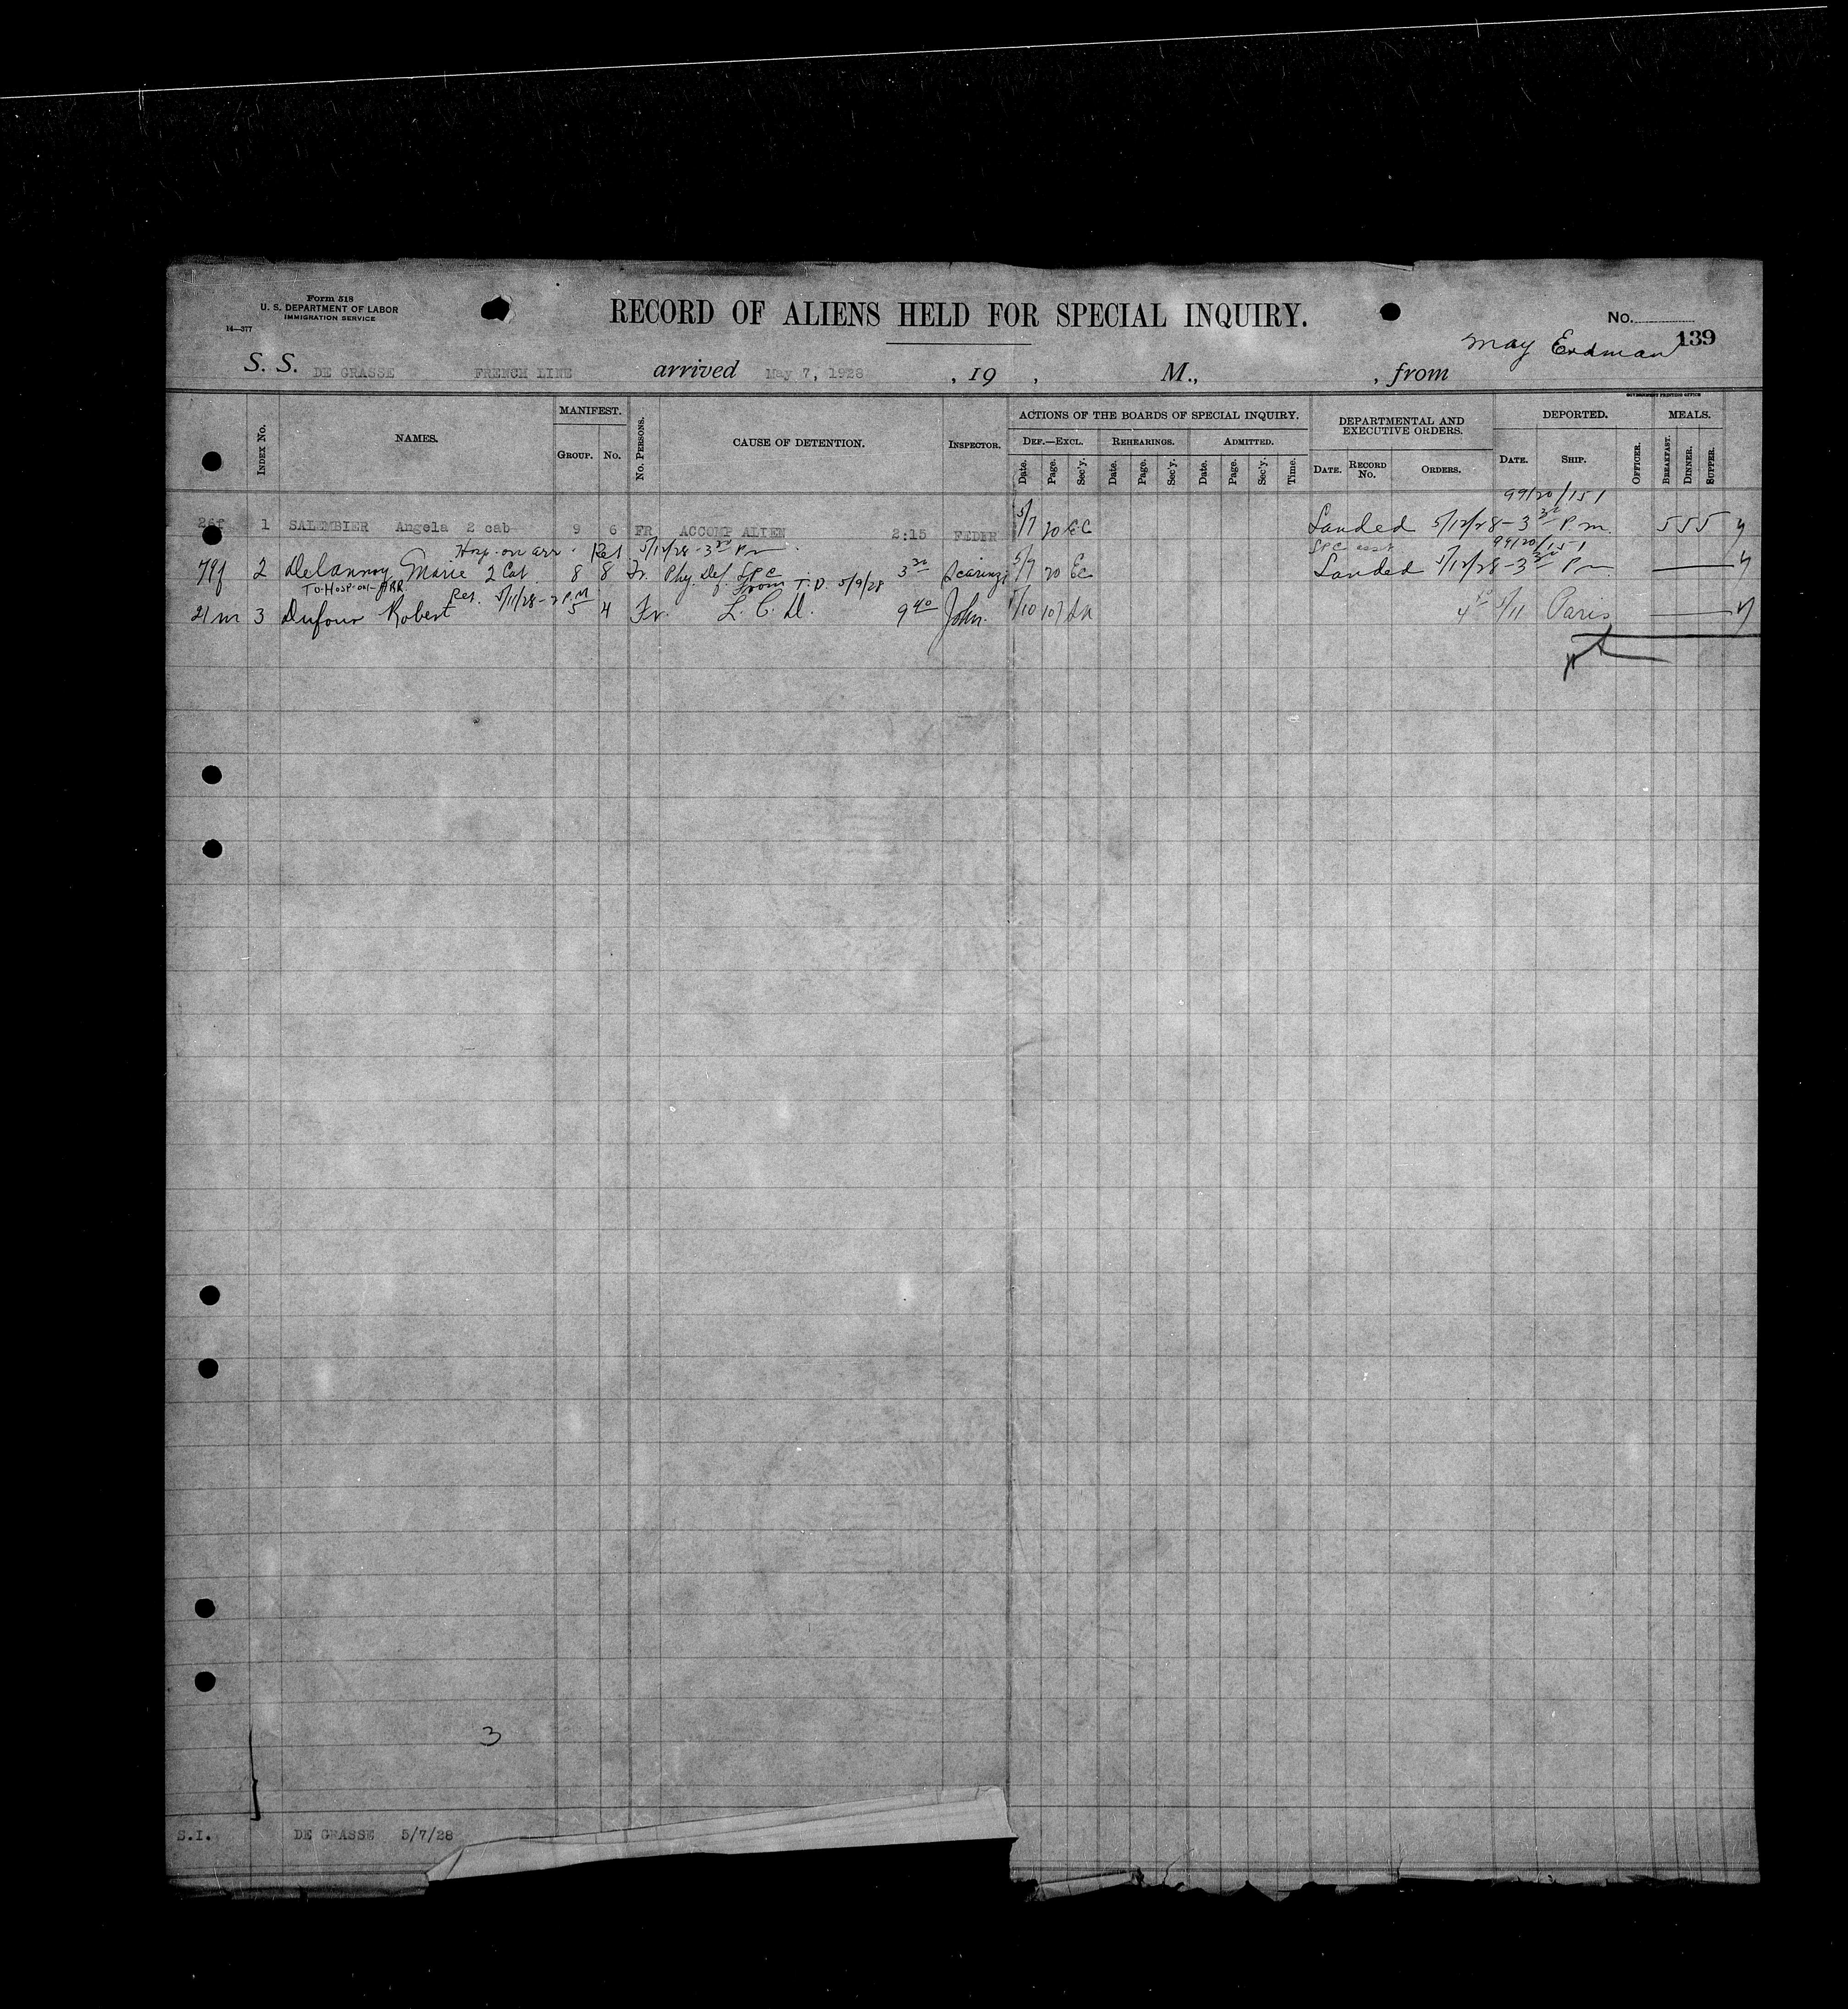 Form 518
U. S. DEPARTMENT OF LABOR
IMMIGRATION SERVICE
14—377
RECORD OF ALIENS HELD FOR SPECIAL INQUIRY.
No.
139
May Erdman
S. S. DE GRASSE FRENCH LINE arrived May 7, 1928 , 19 , M., , from
GOVERNMENT PRINTING OFFICE
INDEX No. NAMES. MANIFEST. GROUP. No. No. PERSONS. CAUSE OF DETENTION. INSPECTOR. ACTIONS OF THE BOARDS OF SPECIAL INQUIRY. DEF.—EXCL. Date. Page. Sec'y. REHEARINGS. Date. Page. Sec'y. ADMITTED. Date. Page. Sec'y. Time. DEPARTMENTAL AND EXECUTIVE ORDERS. DATE. RECORD No. ORDERS. DEPORTED. DATE. SHIP. OFFICER. MEALS. BREAKFAST. DINNER. SUPPER.
99120/151
26f 1 SALEMBIER Angela 2 cab 9 6 FR ACCOMP ALIEN 2:15 FEDER 5/7 20 EC Landed 5/12/28-3 30 P.m. 5 5 5 y
Hosp. on arr. Rel 5/12/28-3 30 Pm
SPC 99120/151
79f 2 Delannoy Marie 2 Cab 8 8 Fr. Phy Def. SPC 3 20 5/7 20 EC Landed 5/12/28-3 30 Pm y
TO-HOSP-ON-ARR. Rel. 5/11/28-2 P.M from T.D. 5/9/28
21m 3 Dufour Robert 5 4 Fr. L. C. D. 9 40 John. 5/10 107 4 5/11 Paris y
3
S.I. DE GRASSE 5/7/28